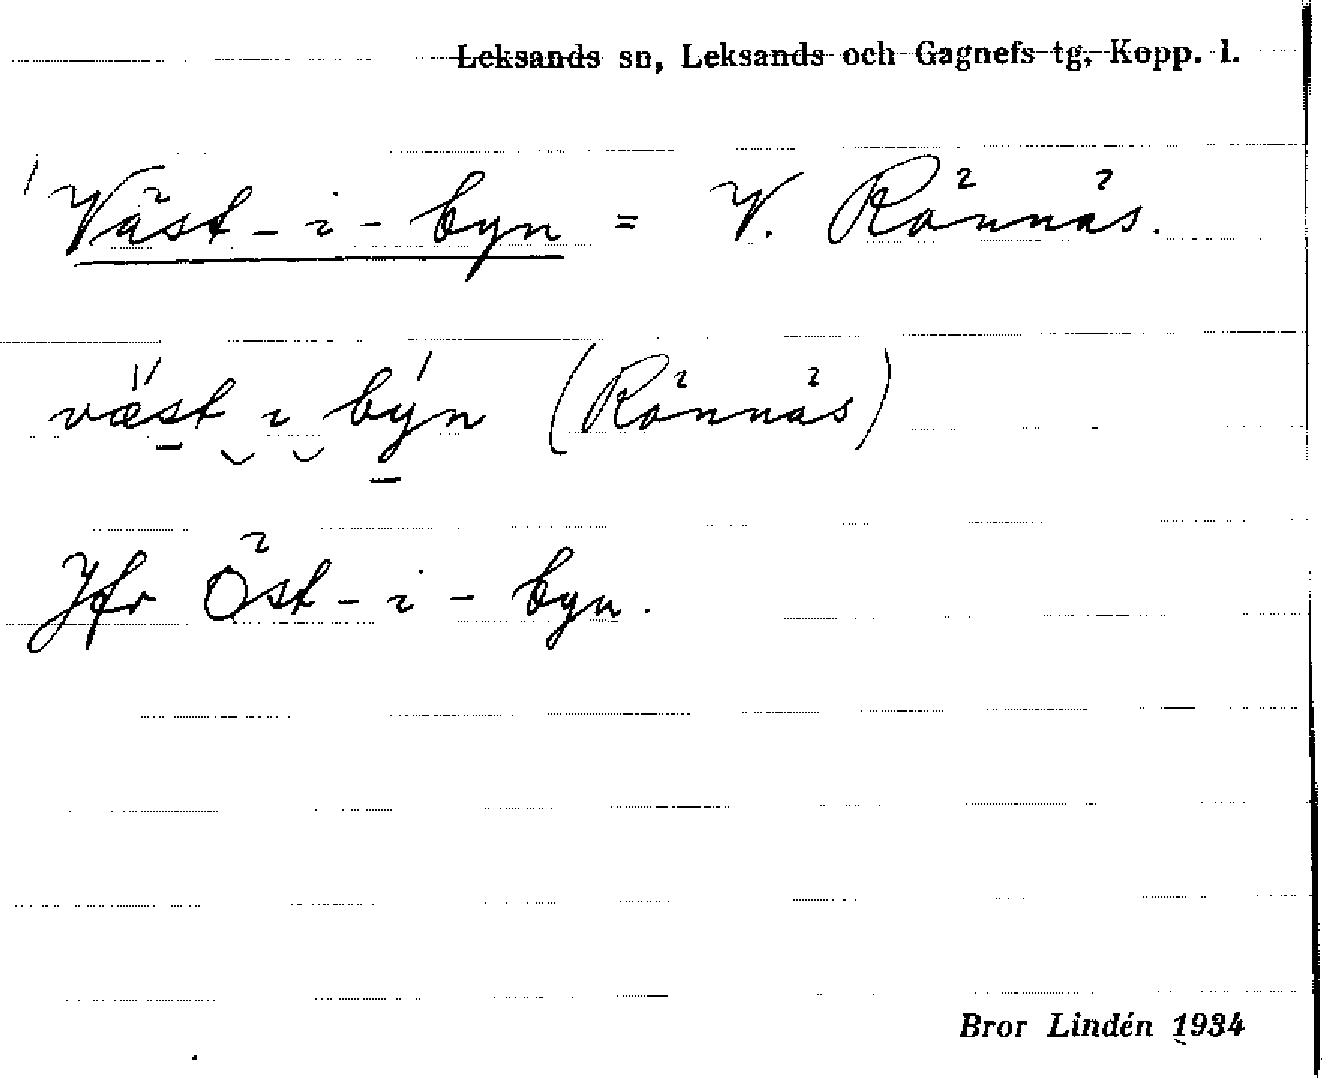 Leksands sn, Leksands och Gagnefs tg, Kopp. l.
Väst-i-byn = V. Rönnäs.
væst i býn (Rönnäs)
Jfr Öst-i-byn.
Bror Lindén 1934